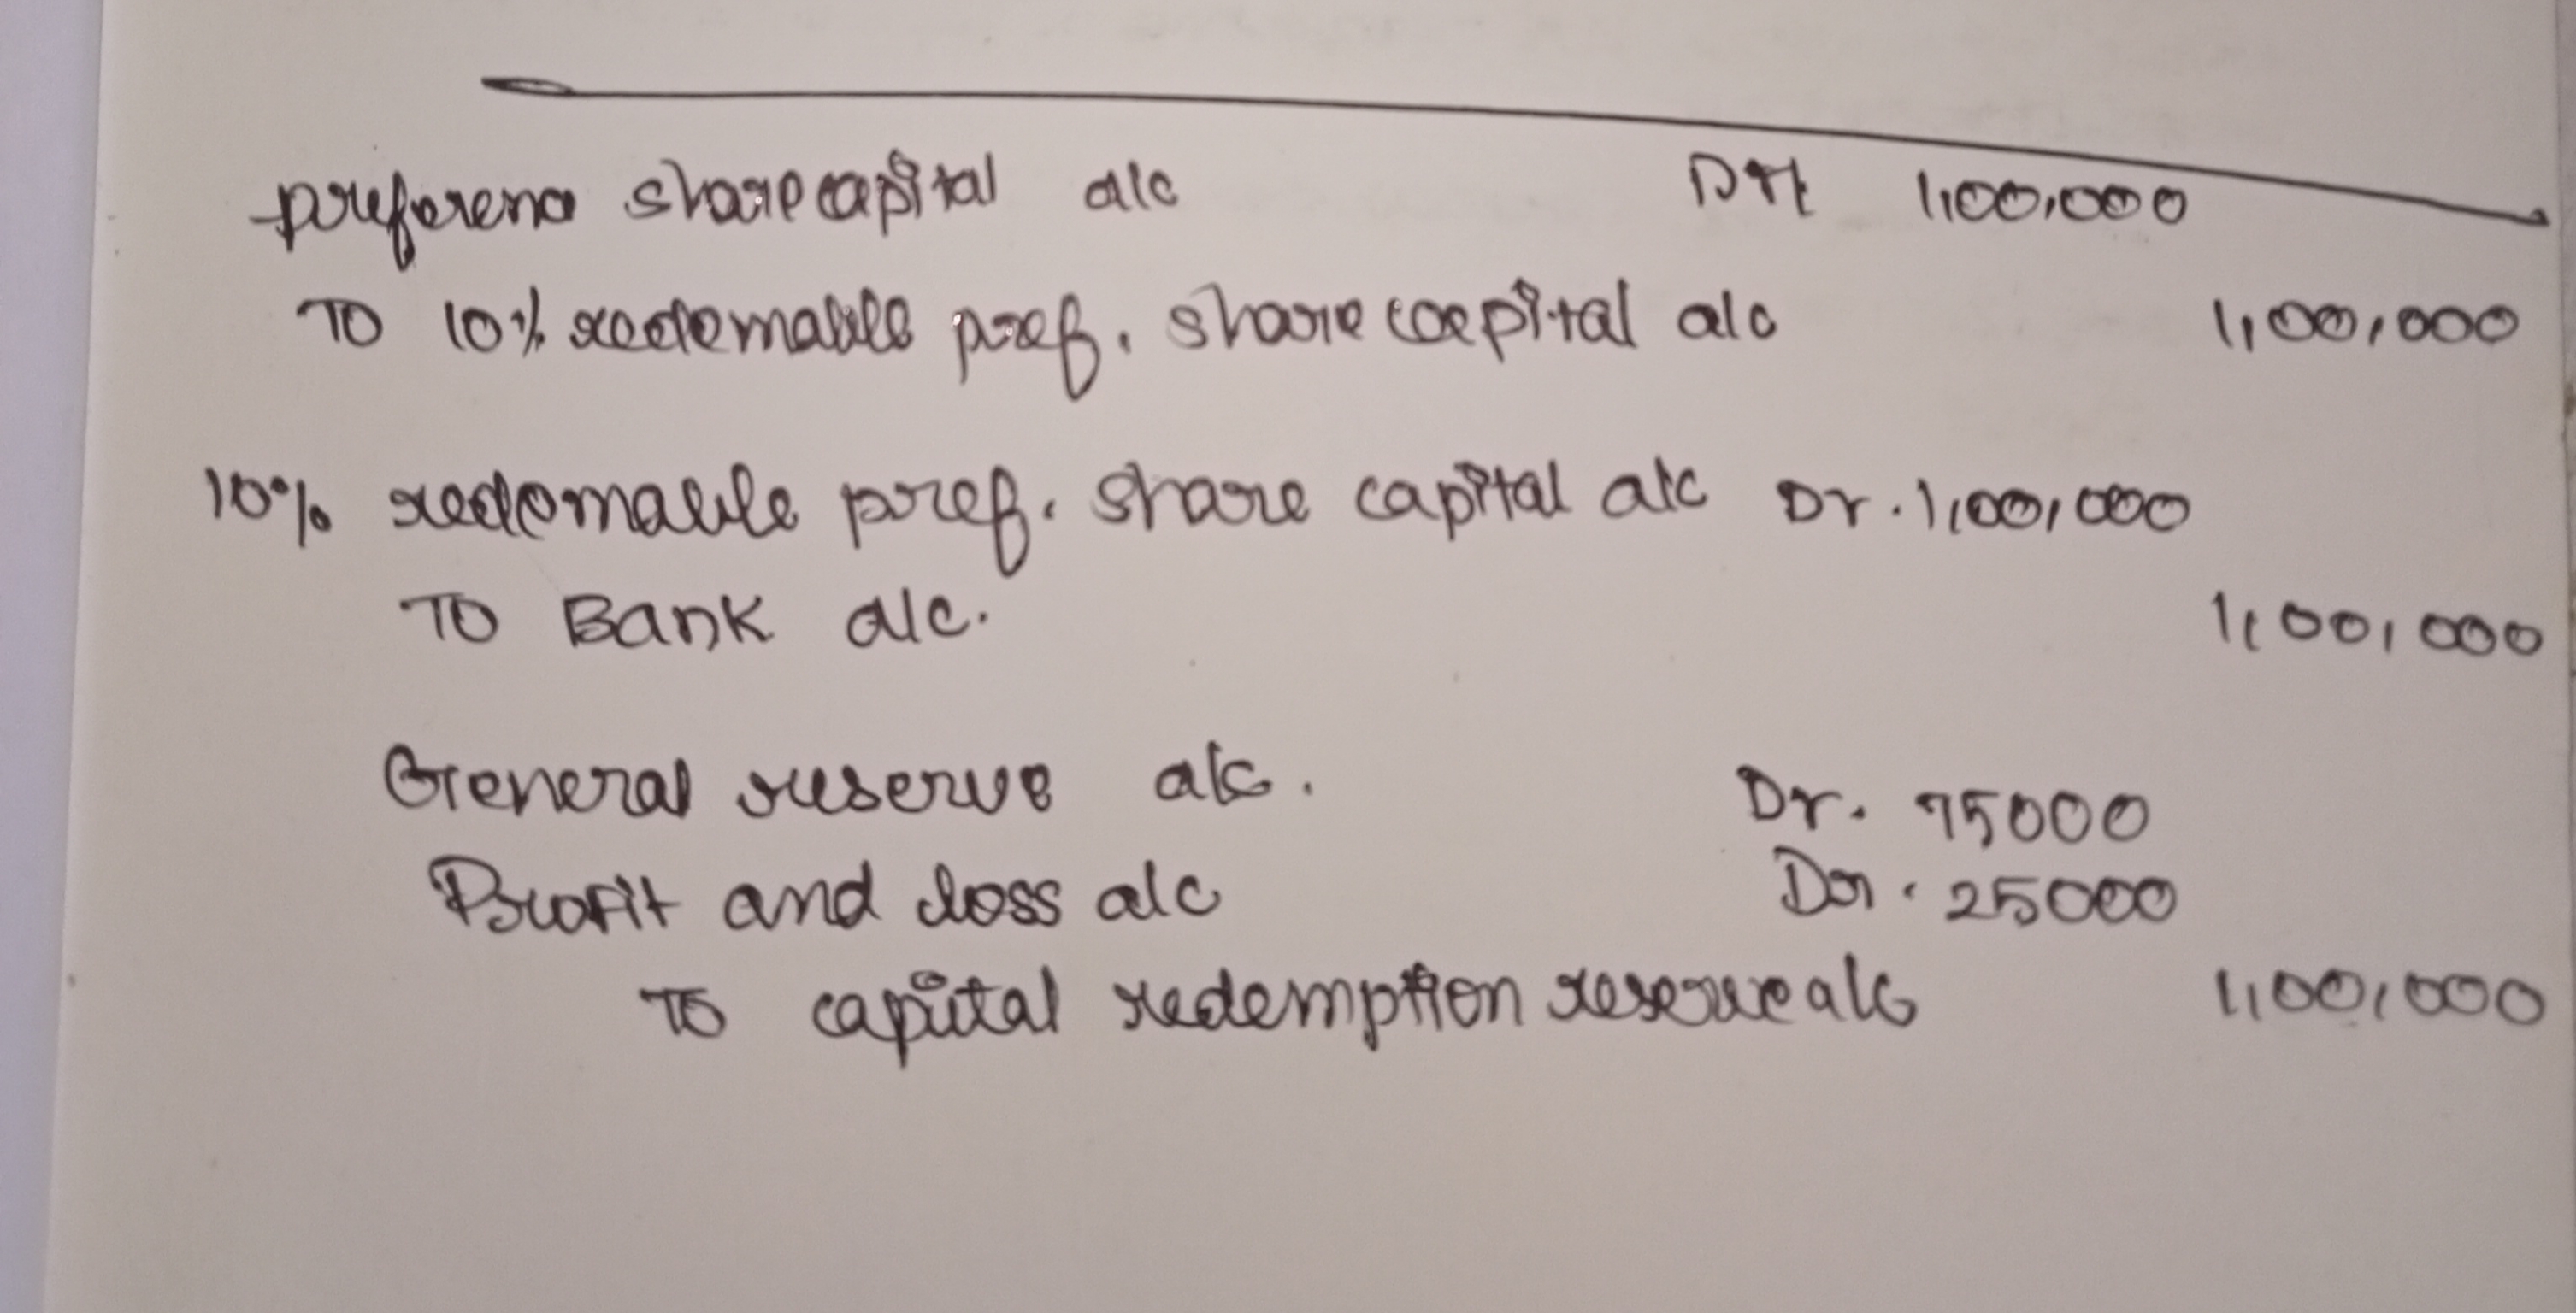 preference share capital a/c Dr 1,00,000
To 10% redemable pref. share capital a/c 1,00,000
10% redemable pref. share capital a/c Dr. 1,00,000
To Bank a/c. 1,00,000
General reserve a/c. Dr. 75000
Profit and loss a/c Dr. 25000
To capital redemption reserve a/c 1,00,000